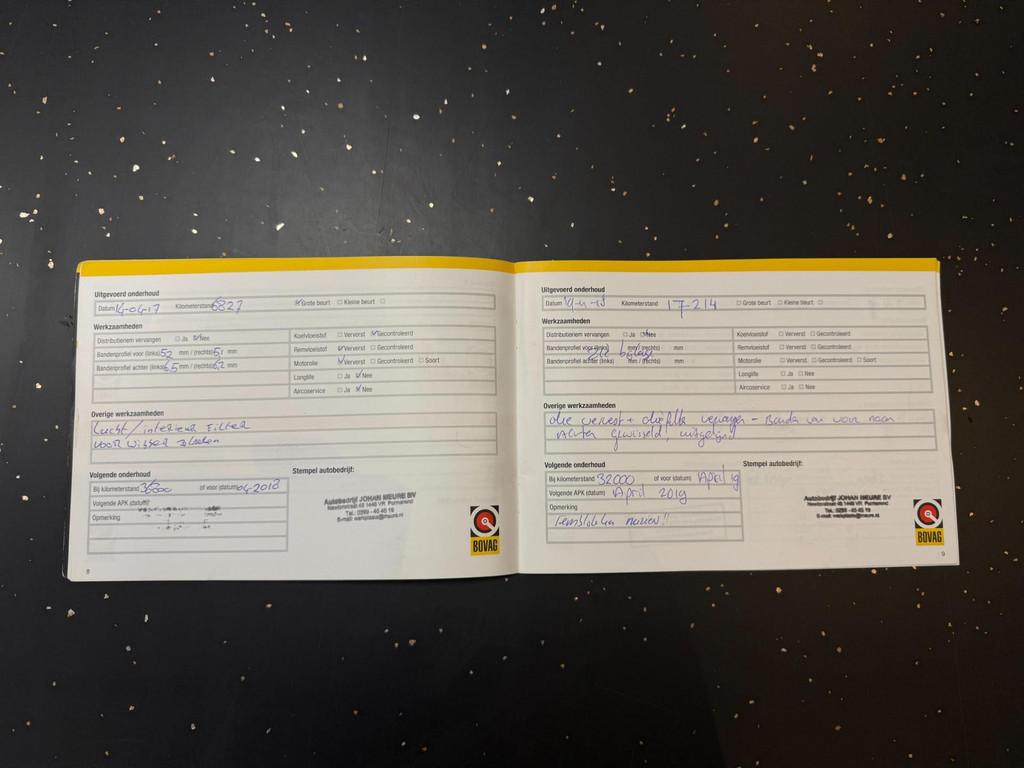 Uitgevoerd onderhoud
Datum 14-04-17 Kilometerstand 6827 Grote beurt Kleine beurt
Werkzaamheden
Distributieriem vervangen Ja Nee
Bandenprofiel voor (links) 52 mm / (rechts) 51 mm
Bandenprofiel achter (links) 65 mm / (rechts) 62 mm
Koelvloeistof Ververst Gecontroleerd
Remvloeistof Ververst Gecontroleerd
Motorolie Ververst Gecontroleerd Soort
Longlife Ja Nee
Aircoservice Ja Nee
Overige werkzaamheden
Lucht/interieur Filter
voor wisser bladen
Volgende onderhoud
Bij kilometerstand of voor (datum) 04-2018
Volgende APK (datum)
Opmerking
Stempel autobedrijf:
Autobedrijf JOHAN MEURE BV
Newtonstraat 48 1446 VR Purmerend
Tel.: 0299 - 45 45 19
E-mail: werkplaats@meure.nl
BOVAG
8
Uitgevoerd onderhoud
Datum Kilometerstand 17-214 Grote beurt Kleine beurt
Werkzaamheden
Distributieriem vervangen Ja Nee
Bandenprofiel voor (links) mm / (rechts) mm
zie bijlage
Bandenprofiel achter (links) mm / (rechts) mm
Koelvloeistof Ververst Gecontroleerd
Remvloeistof Ververst Gecontroleerd
Motorolie Ververst Gecontroleerd Soort
Longlife Ja Nee
Aircoservice Ja Nee
Overige werkzaamheden
olie ververst + oliefilter vervangen - Banden van voor naar
Achter gewisseld,
Volgende onderhoud
Bij kilometerstand 32000 of voor (datum) April 19
Volgende APK (datum) April 2019
Opmerking
Remblokken nazien!!
Stempel autobedrijf:
Autobedrijf JOHAN MEURE BV
Newtonstraat 48 1446 VR Purmerend
Tel.: 0299 - 45 45 19
E-mail: werkplaats@meure.nl
BOVAG
9